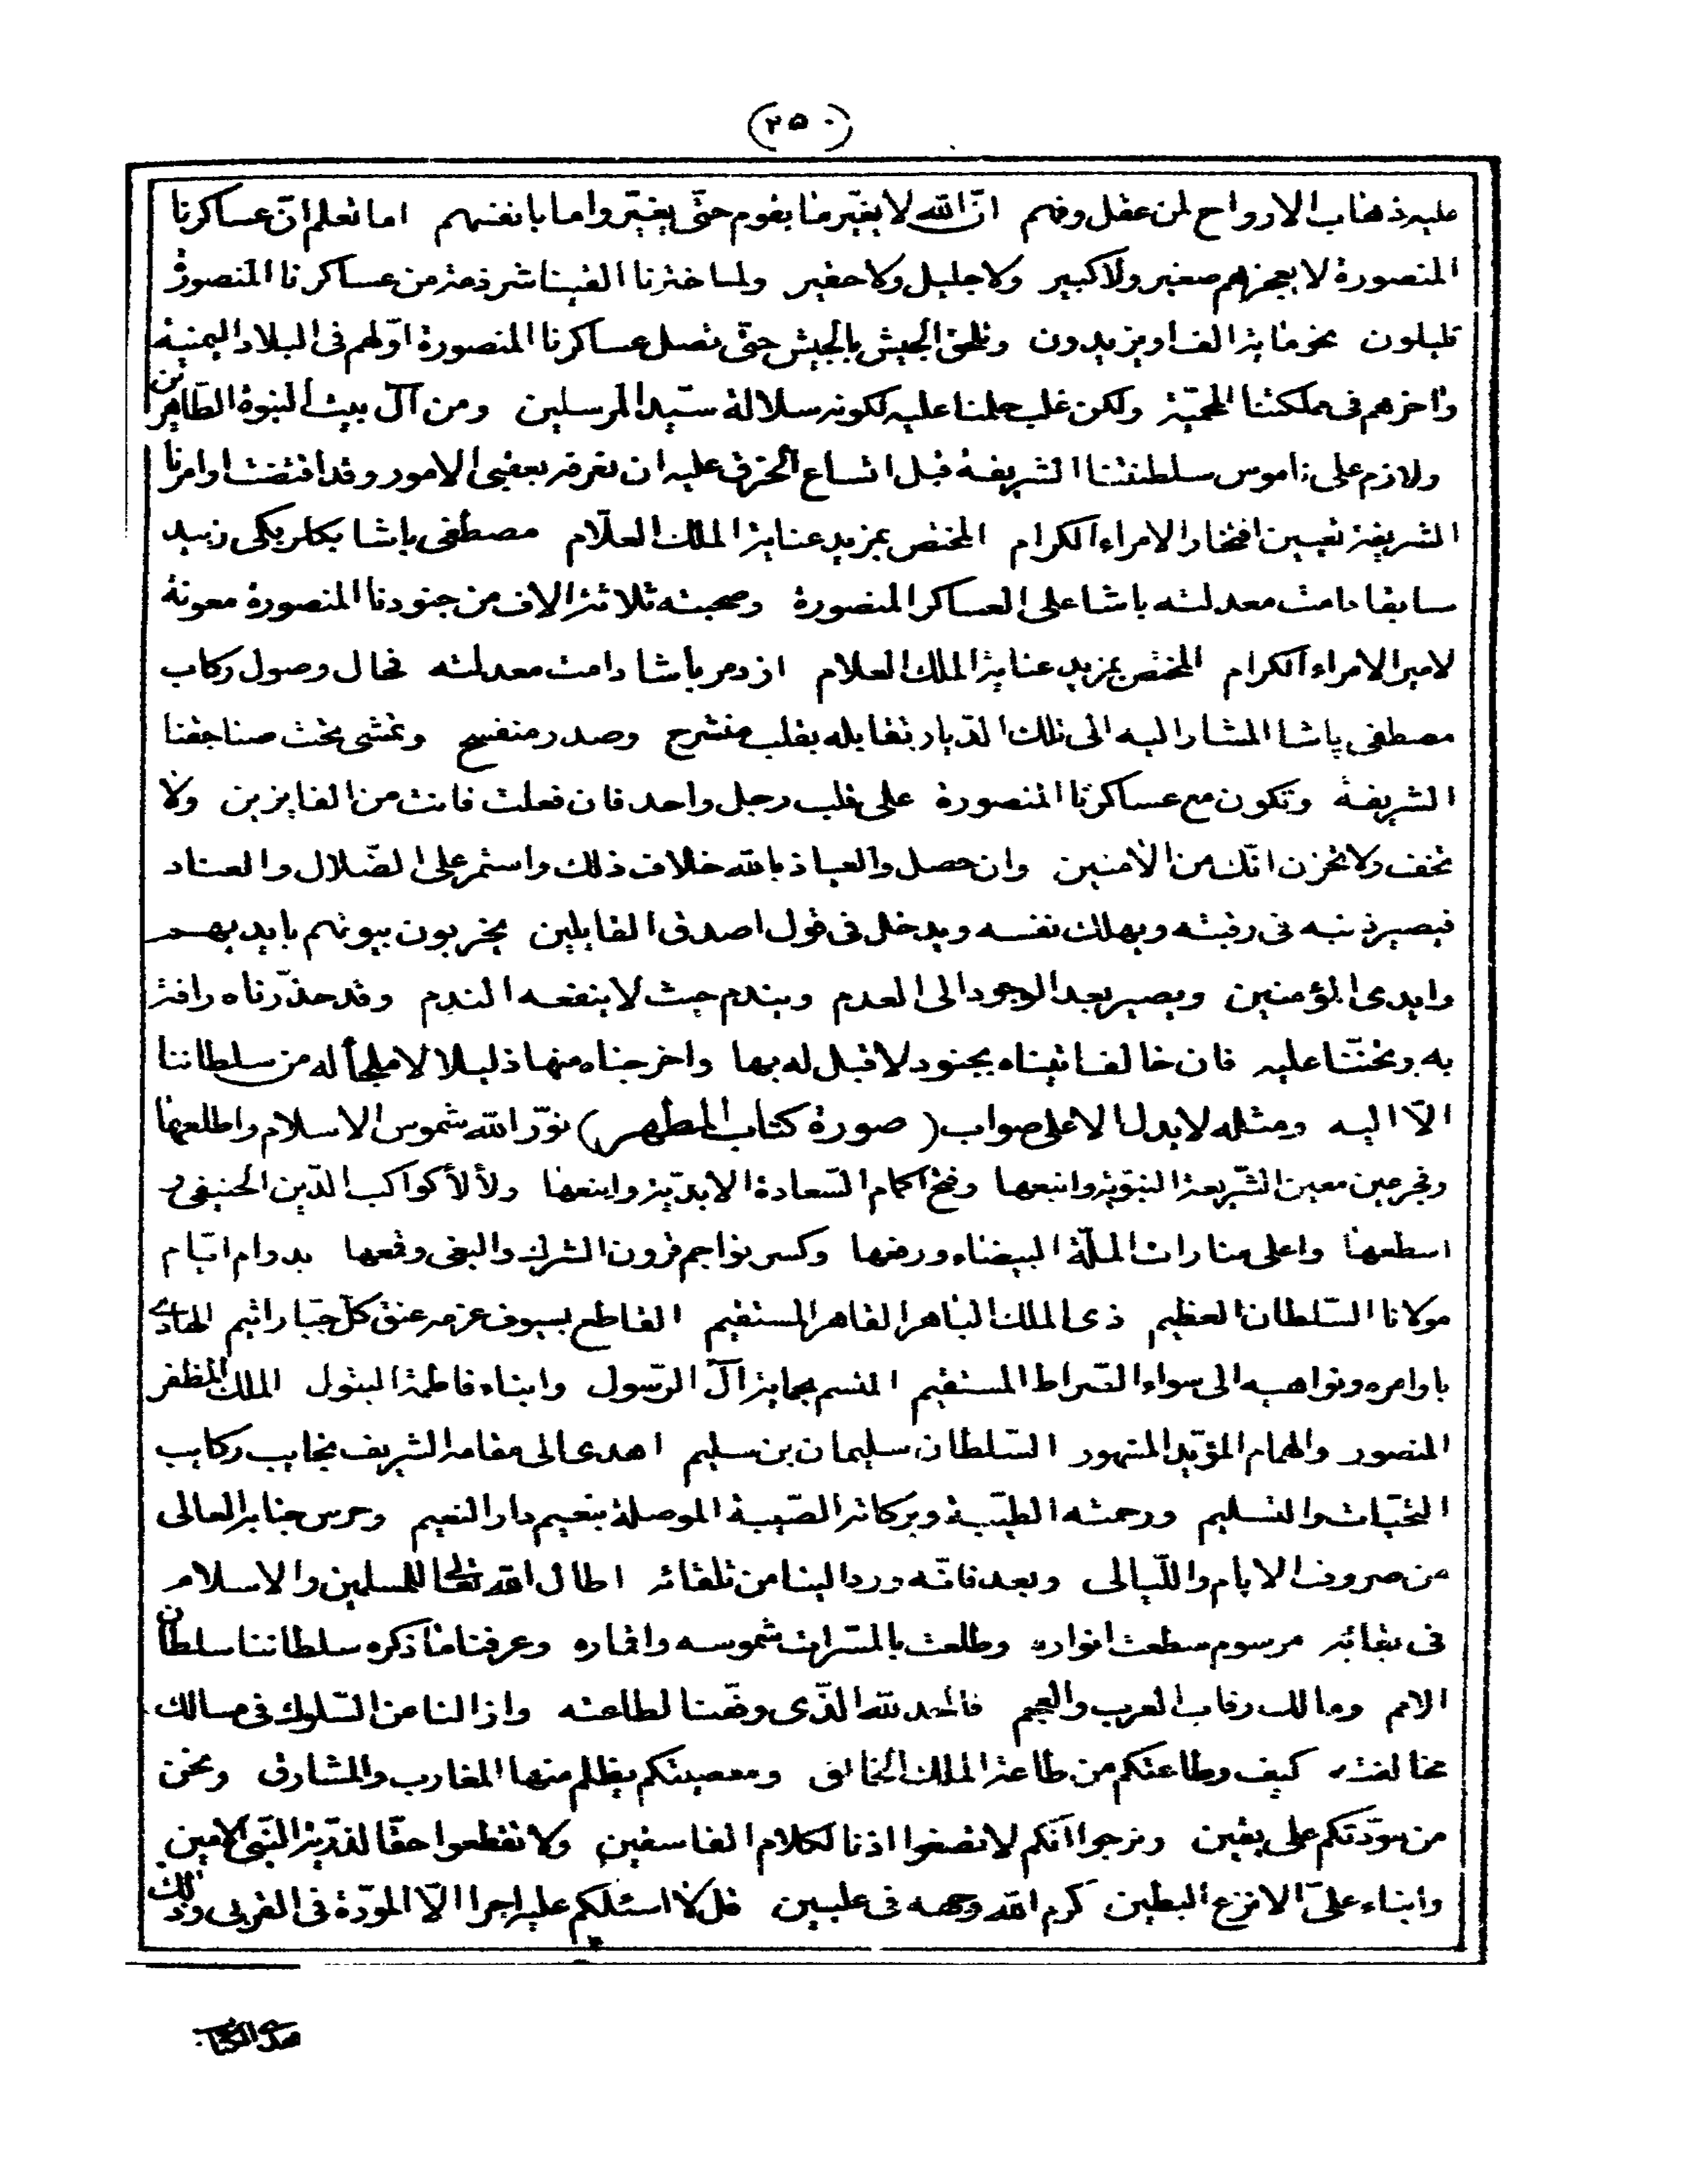 (٢٥٠)
عليه ذهاب الارواح لمن عقل وفهم ان الله لا يغير ما بقوم حتى يغيروا ما بانفسهم اما تعلم ان عساكرنا
المنصورة لا يعجزهم صغير ولا كبير ولا جليل ولا حقير ولما اخترنا الفينا شرذمة من عساكرنا المنصورة
قليلون نحو ماية الف او يزيدون وتلحق الجيش بالجيش حتى تصل عساكرنا المنصورة اولهم فى البلاد اليمنية
واخرهم فى مملكتنا المحمية ولكن غلب حلمنا عليه لكونه سلالة سيد المرسلين ومن آل بيت النبوة الطاهرين
ولازم على ناموس سلطنتنا الشريفة قبل اتساع الخرق عليه ان نعرفه بعقبى الامور وقد اقتضت اوامرنا
الشريفة تعيين افتخار الامراء الكرام المختص بمزيد عناية الملك العلّام مصطفى باشا بكلربكى زبيد
سابقا دامت معدلته باشا على العساكر المنصورة وصحبته ثلاثة الاف من جنودنا المنصورة معونة
لامير الامراء الكرام المختص بمزيد عناية الملك العلام ازدمر باشا دامت معدلته فحال وصول ركاب
مصطفى پاشا المشار اليه الى تلك الديار تقابله بقلب منشرح وصدر منفسح وتمشى تحت صناجقنا
الشريفة وتكون مع عساكرنا المنصورة على قلب رجل واحد فان فعلت فانت من الفايزين ولا
تخف ولا تحزن انّك من الآمنين وان حصل والعياذ بالله خلاف ذلك واستمر على الضّلال والعناد
فيصير ذنبه فى رقبته ويهلك نفسه ويدخل فى قول اصدق القايلين يخربون بيوتهم بايديهم
وايدى المؤمنين ويصير بعد الوجود الى العدم ويندم حيث لا ينفعه الندم وقد حذّرناه رافة
به وتحننا عليه فان خالف اتيناه بجنود لا قبل له بها واخرجناه منها ذليلا لا ملجأ له من سلطاننا
الّا اليه ومثله لا يدل الا على صواب (صورة كتاب المطهر) نوّر الله شموس الاسلام واطلعها
وفجر عين معين الشّريعة النبويّة وانبعها وفتح اكمام السّعادة الابديّة واينعها ولألأ كواكب الدّين الحنيفى و
اسطعها واعلى منارات الملّة البيضاء ورفعها وكسر نواجم قرون الشرك والبغى وقمعها بدوام ايّام
مولانا السّلطان العظيم ذى الملك الباهر القاهر المستقيم القاطع بسيوف عزمه عنق كلّ جبّار اثيم الهادى
باوامره ونواهيه الى سواء الصّراط المستقيم المتسم بحماية آل الرّسول وابناء فاطمة البتول الملك المظفر
المنصور والهمام المؤيّد المشهور السّلطان سليمان بن سليم اهدى الى مقامه الشريف نجايب ركايب
التحيّات والتسليم ورحمته الطيّبة وبركاته الصّيبة الموصلة بنعيم دار النعيم وحرس جنابه العالى
من صروف الايام واللّيالى وبعد فانّه ورد الينا من تلقائه اطال الله تعالى للمسلمين والاسلام
فى بقائه مرسوم سطعت انواره وطلعت بالمسرات شموسه واقماره وعرفنا ما ذكره سلطاننا سلطان
الامم ومالك رقاب العرب والعجم فالحمد لله الّذى وفّقنا لطاعته وازالنا عن السّلوك فى مسالك
مخالفته كيف وطاعتكم من طاعة الملك الخالق ومعصيتكم يظلم منها المغارب والمشارق ونحن
من مودّتكم على يقين ونرجوا انّكم لا تصغوا اذنا لكلام الفاسقين ولا تقطعوا حقّا لذرّية النّبى الامين
وابناء علىّ الانزع البطين كرم الله وجهه فى عليين قل لا اسئلكم عليه اجرا الّا المودّة فى القربى وذلك
هذا الكتاب